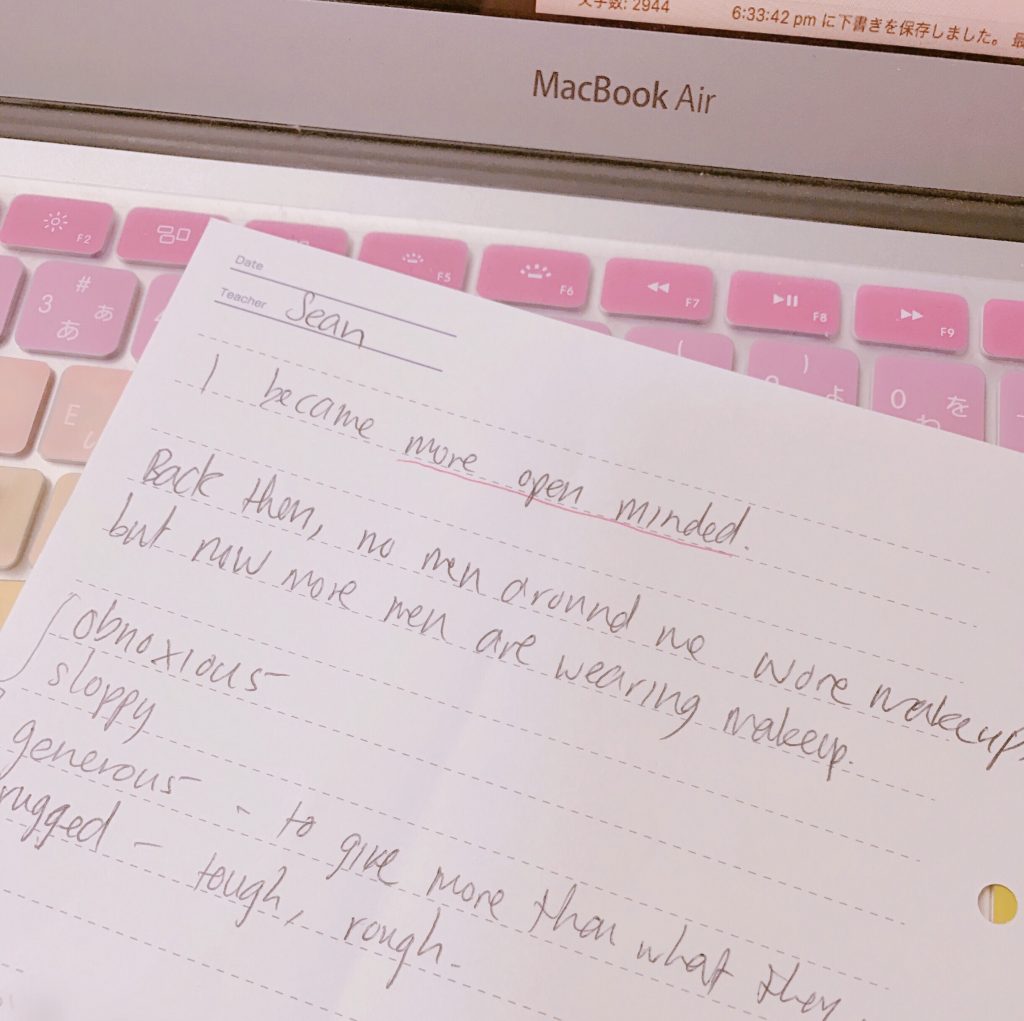 文字数: 2944 6:33:42 pm に下書きを保存しました。 最
MacBook Air
F2
F5
F6
F7
F8
F9
#
3 あ
あ
(
)
よ
0 を
わ
E
い
Date
Teacher Sean
I became more open minded.
Back then, no men around me wore makeup,
but now more men are wearing makeup.
obnoxious
sloppy
generous - to give more than what they
rugged - tough, rough.